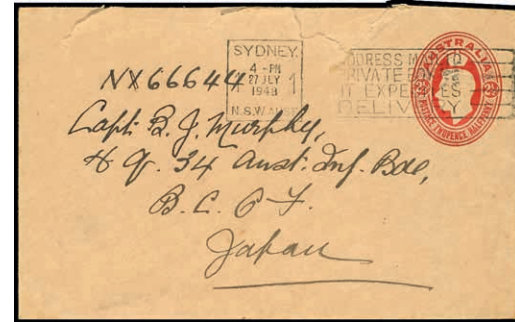 SYDNEY.
4 - PM
27 JLY
1948
N.S.W. AUST
ADDRESS MAIL TO
PRIVATE BOX
IT EXPEDITES
DELIVERY
AUSTRALIA
POSTAGE TWOPENCE HALFPENNY
NX66644
Capt. B. J. Murphy,
H Q. 34 Aust. Inf. Bde,
B. C. O F.
Japan